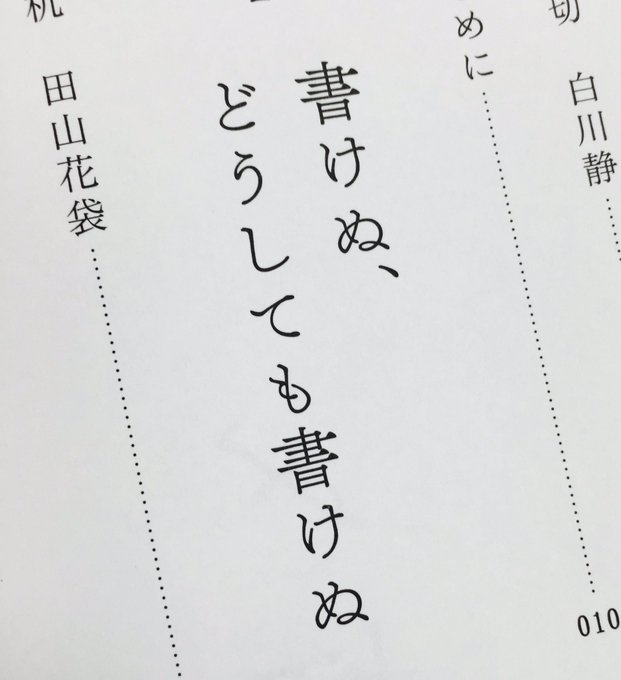 切 白川静
めに
010
書けぬ、
どうしても書けぬ
机 田山花袋